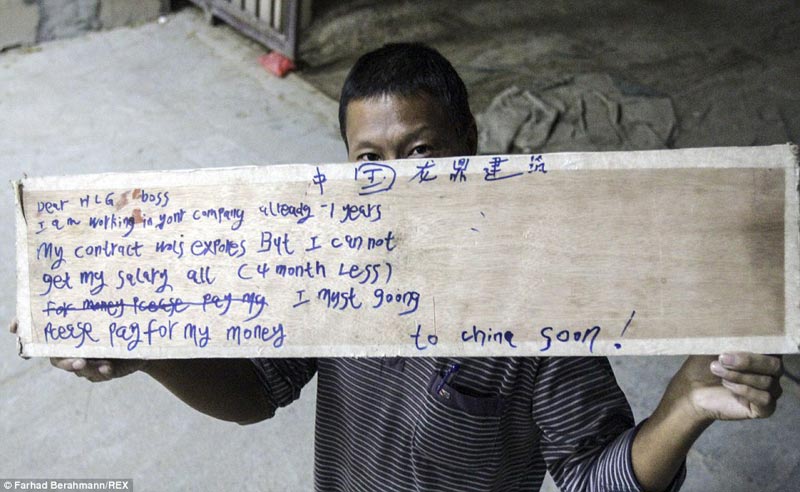 中国龙鼎建筑
Dear HLG boss
I am working in your company already -1 years
My contract expores But I can not
get my salary all (4 month Less)
For money Please pay my I myst goong
Please pay for my money to china soon!
© Farhad Berahmann/REX